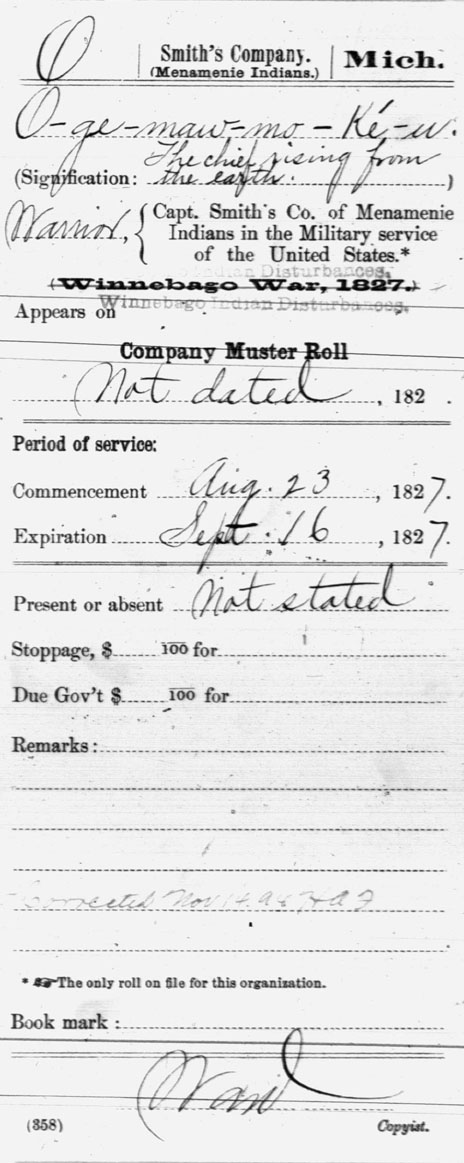 O Smith's Company. Mich.
(Menamenie Indians.)
O-ge-maw-mo-Ké-u.
The chief rising from
(Signification: the earth. )
Warrior, { Capt. Smith's Co. of Menamenie
Indians in the Military service
of the United States.*
Indian Disturbances,
(Winnebago War, 1827.)
Winnebago Indian Disturbances.
Appears on
Company Muster Roll
Not dated, 182 .
Period of service:
Commencement Aug. 23, 1827.
Expiration Sept. 16, 1827.
Present or absent Not stated
Stoppage, $ 100 for
Due Gov't $ 100 for
Remarks:
Corrected Nov 14
* ☞The only roll on file for this organization.
Book mark:
(358) Copyist.